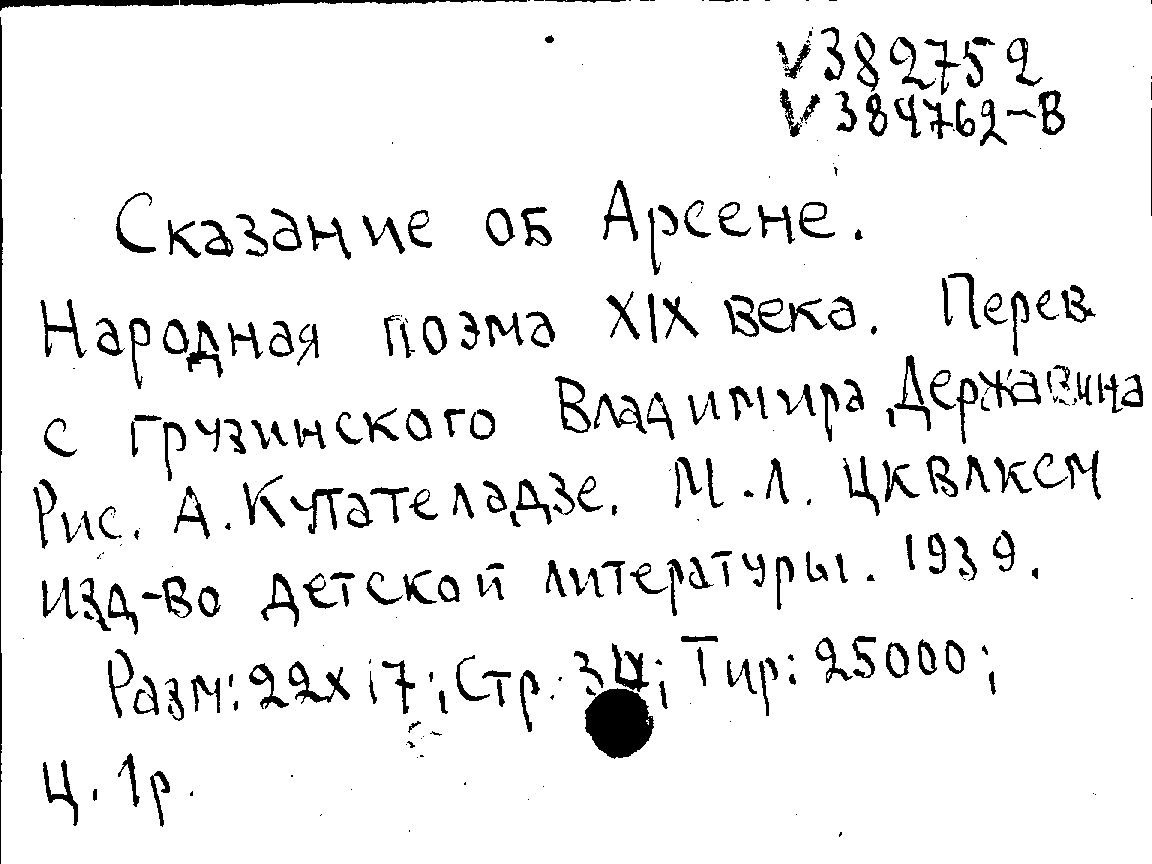 V382752
V384762-В
Сказание об Арсене.
Народная поэма XIX века. Перев.
с грузинского Владимира Державина
Рис. А. Кутателадзе. М.Л. ЦКВЛКСМ
изд-во детской литературы. 1939.
Разм: 22x17; Стр. 34; Тир: 25000;
Ц. 1р.